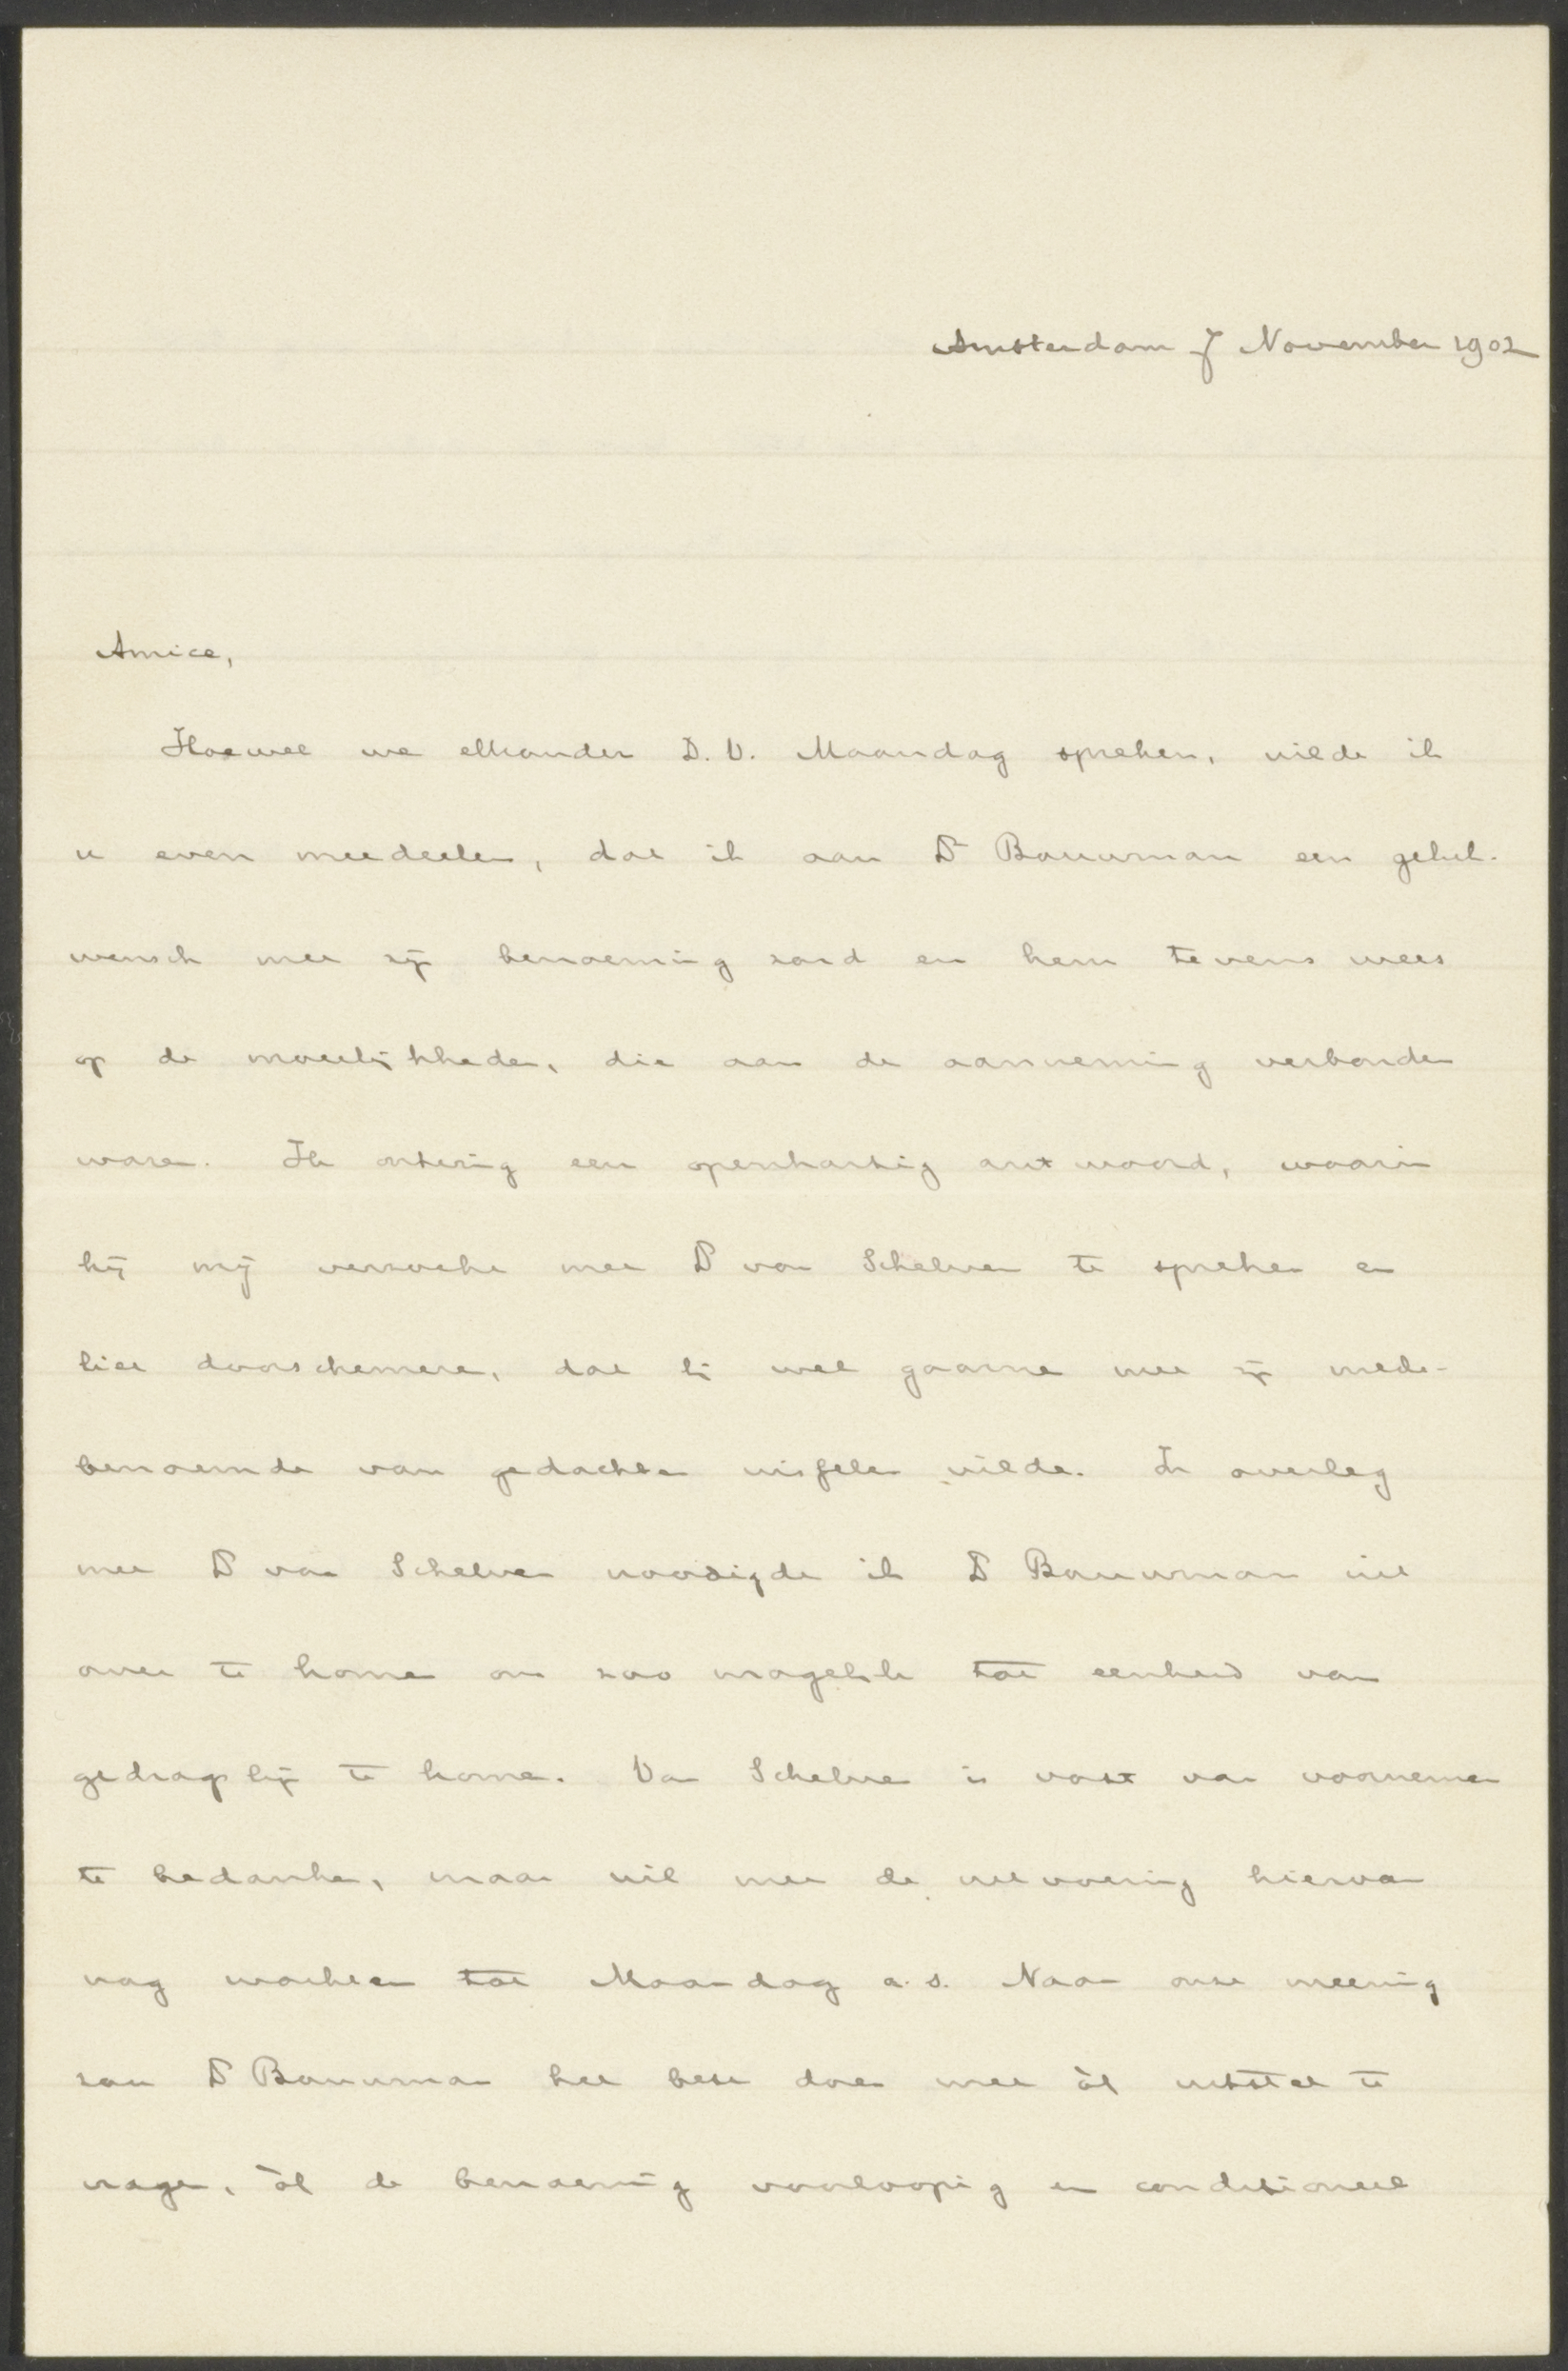 Amsterdam 7 November 1902
Amice,
Hoewel we elkander D.V. Maandag spreken, wilde ik
u even meedeelen, dat ik aan Ds Bouwman een geluk-
wensch met zijn benoeming zond en hem tevens wees
op de moeilijkheden, die aan de aanneming verbonden
waren. Ik ontving een openhartig antwoord, waarin
hij mij verzocht met Ds van Schelven te spreken en
liet doorschemeren, dat hij wel gaarne met zijn mede-
benoemde van gedachten wisselen wilde. In overleg
met Ds van Schelven noodigde ik Ds Bouwman uit
over te komen om zoo mogelijk tot eenheid van
gedragslijn te komen. Van Schelven is vast van voornemen
te bedanken, maar wil met de uitvoering hiervan
nog wachten tot Maandag a.s. Naar onze meening
zou Ds Bouwman het best doen met òf uitstel te
vragen, òf de benoeming voorloopig en conditioneel